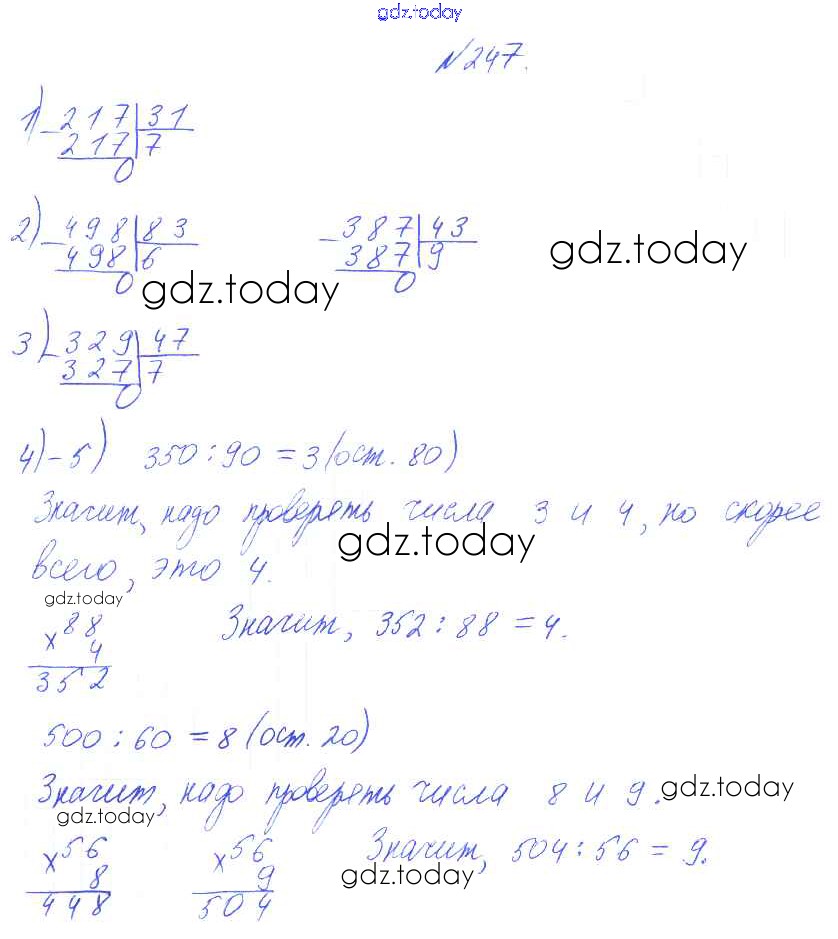 gdz.today
№247.
1) - 217 | 31
217 | 7
0
2) - 498 | 83   - 387 | 43
498 | 6   387 | 9
0   0
gdz.today
gdz.today
3) - 329 | 47
327 | 7
0
4)-5) 350 : 90 = 3 (ост. 80)
Значит, надо проверять числа 3 и 4, но скорее
gdz.today
всего, это 4.
gdz.today
× 88   Значит, 352 : 88 = 4.
4
352
500 : 60 = 8 (ост. 20)
Значит, надо проверять числа 8 и 9.
gdz.today
gdz.today
× 56   × 56   Значит, 504 : 56 = 9.
8   9
gdz.today
448   504